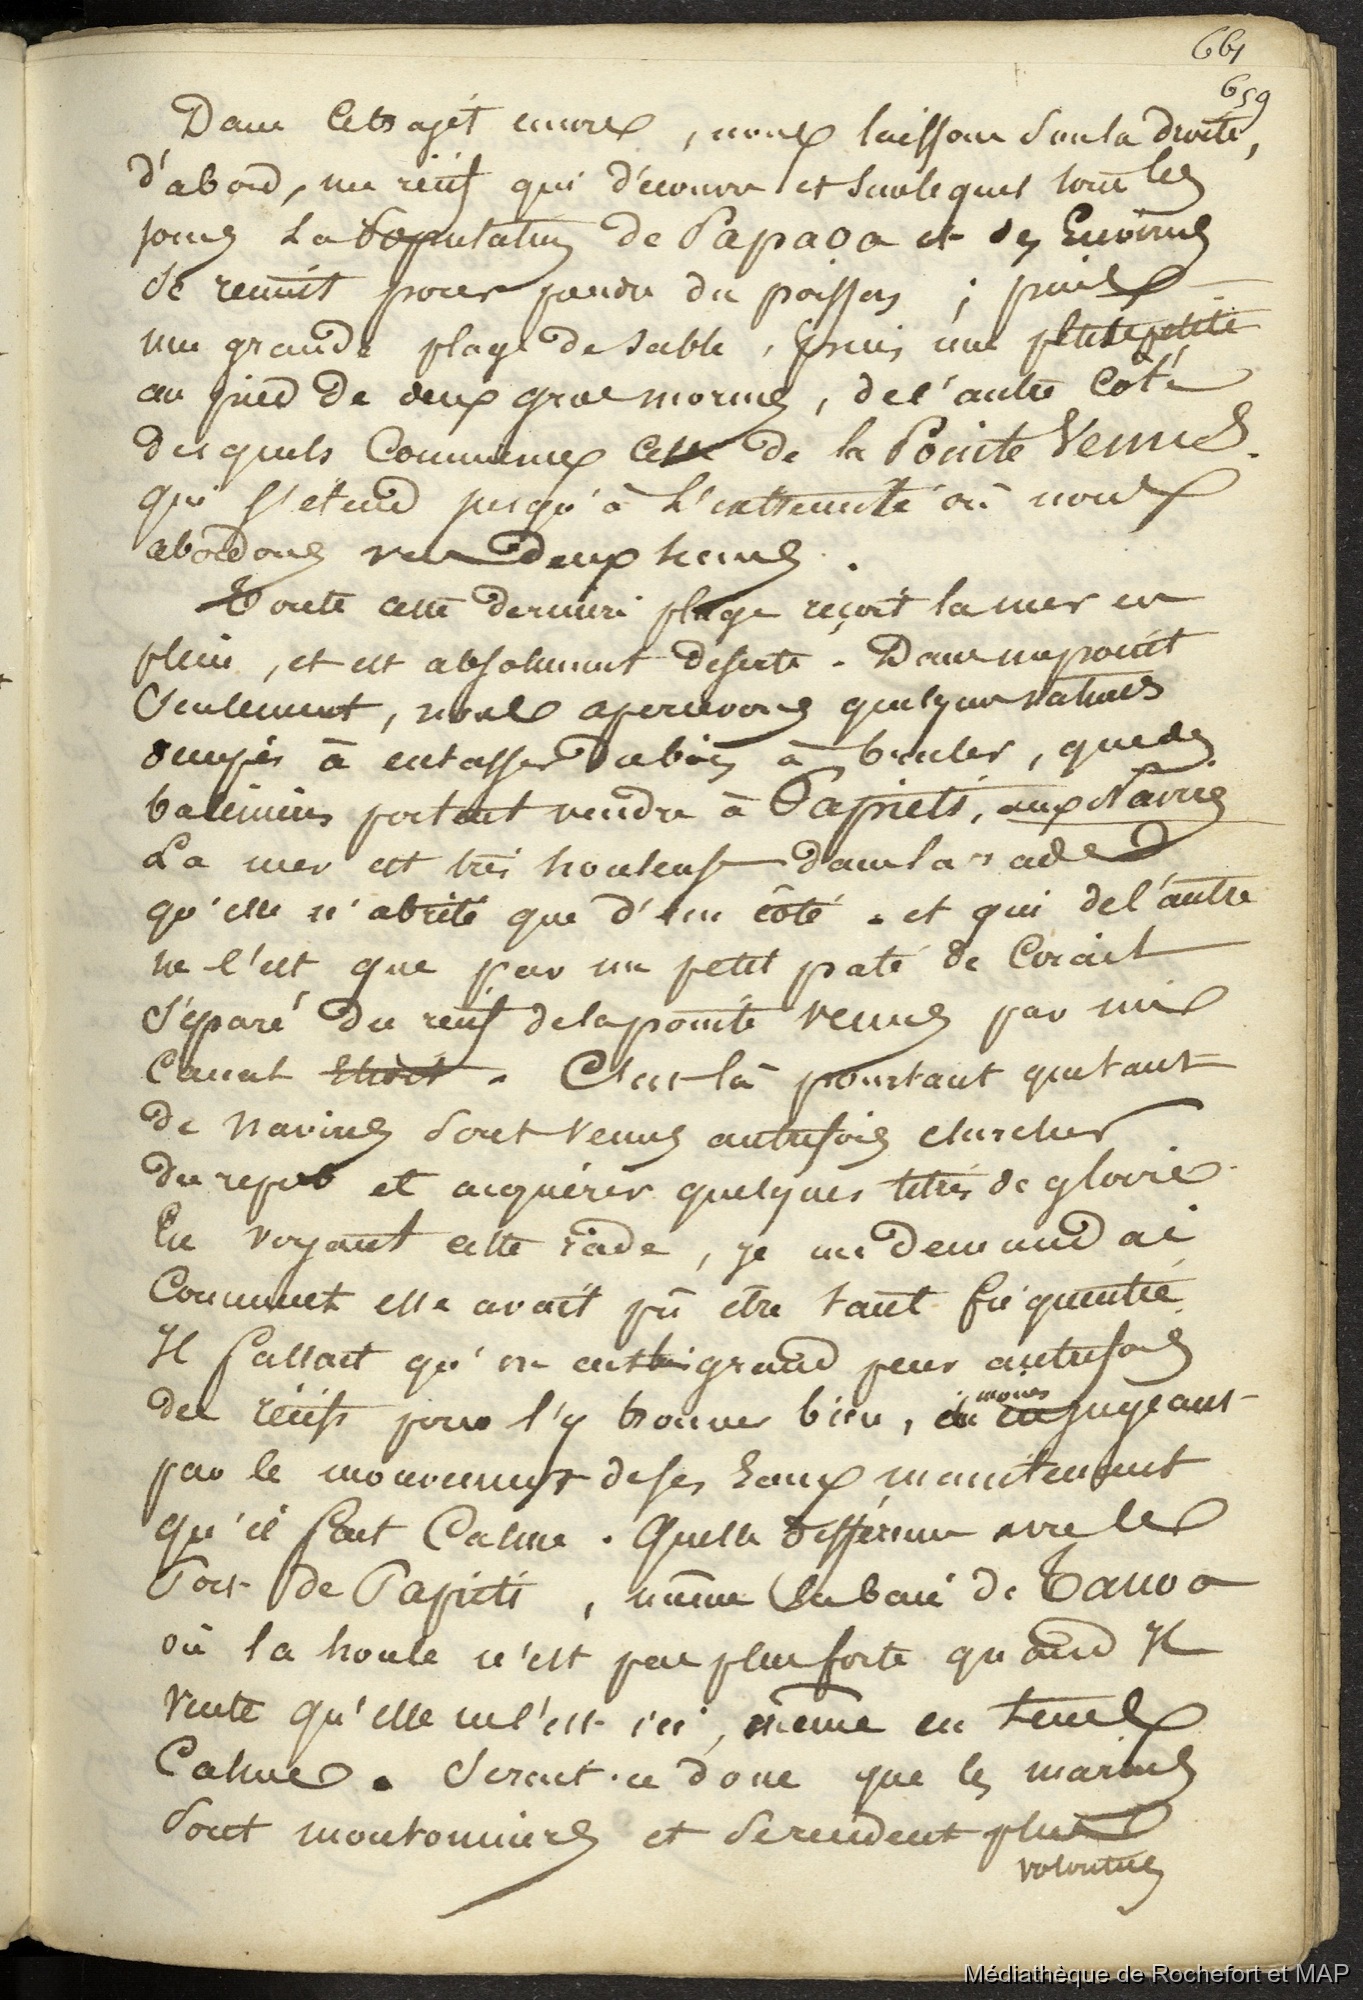 661
659
Dans ce trajet encore, nous laissons sur la droite,
d'abord, un récif qui découvre et sur lequel tous les
jours la population de Papaoa et des Environs
se réunit pour prendre du poisson ; puis
une grande plage de sable, puis une plus petite
au pied de deux gros mornes, de l'autre côté
desquels commence celle de la Pointe Venus
qui s'étend jusqu'à l'extremité où nous
abordons vers deux heures.
Toute cette dernière plage reçoit la mer en
plein, et est absolument deserte. Dans un point
seulement, nous apercevons quelques naturels
occupés à entasser du bois à bruler, que des
baleiniers portent vendre à Papieti, aux Navires
La mer est très houleuse dans la rade
qu'elle n'abrite que d'un côté. et qui de l'autre
ne l'est que par un petit paté de Corail
séparé du récif de la pointe Venus par un
Canal étroit. C'est là pourtant que tant
de navires sont venus autrefois chercher
du repos et acquérir quelques titres de gloire.
En voyant cette rade, je me demandai
comment elle avait pû être tant fréquentée.
Il fallait qu'on eut bien grand peur autrefois
des récifs pour s'y trouver bien, moins
en jugeant
par le mouvement de ses Eaux maintenant
qu'il fait Calme. Quelle différence avec le
Port de Papieti, même la baie de Tanoa
où la houle n'est pas plus forte quand il
vente qu'elle ne l'est ici, même en tems
Calme. Serait-ce donc que les marins
sont moutonniers et se rendent plus
volontiers
Médiathèque de Rochefort et MAP